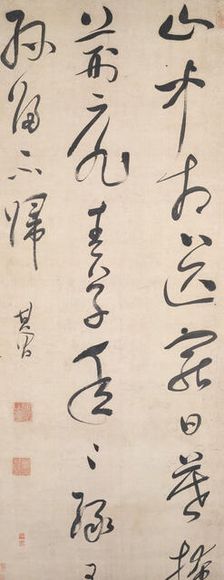 山中相送罷日暮掩
荊扉春草年々綠王
孫不歸
其昌